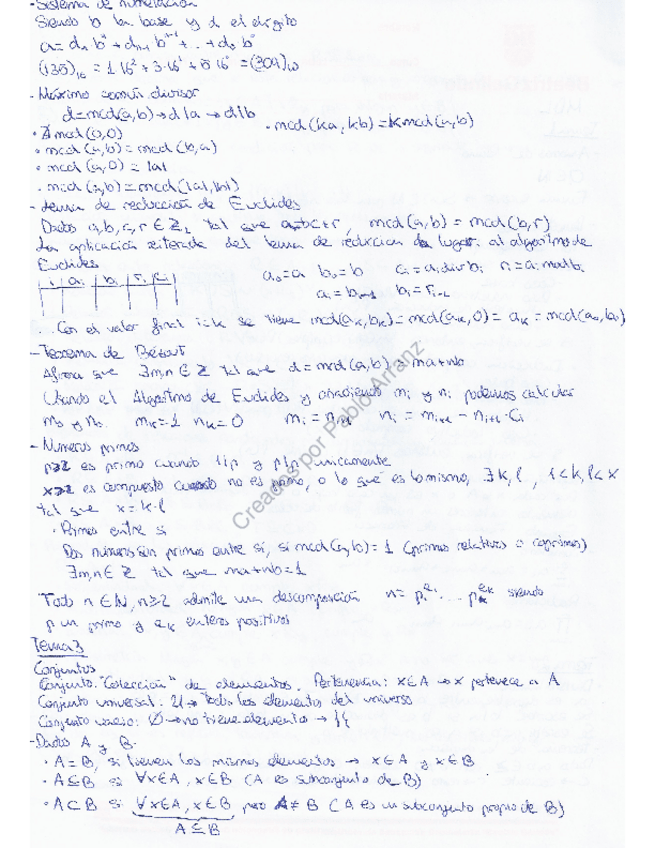 -Sistema de numeración
Siendo b la base y d el dígito
a = dₙ bⁿ + dₙ₋₁ bⁿ⁻¹ + ... + d₀ b⁰
(135)₁₆ = 1·16² + 3·16¹ + 5·16⁰ = (309)₁₀
- Máximo común divisor
d=mcd(a,b) → d|a → d|b
· ∄ mcd(0,0) · mcd(ka, kb) = k mcd(a,b)
· mcd(a,b) = mcd(b,a)
· mcd(a,0) = |a|
· mcd(a,b) = mcd(|a|,|b|)
- Lema de reducción de Euclides
Dados a,b,c,r ∈ Z, tal que a=bc+r, mcd(a,b) = mcd(b,r)
La aplicación reiterada del lema de reducción da lugar al algoritmo de
Euclides
i aᵢ bᵢ rᵢ cᵢ a₀=a b₀=b cᵢ = aᵢ div bᵢ rᵢ = aᵢ mod bᵢ
aᵢ = bᵢ₋₁ bᵢ = rᵢ₋₁
Con el valor final i=k se tiene mcd(aₖ,bₖ) = mcd(aₖ,0) = aₖ = mcd(a₀,b₀)
- Teorema de Bézout
Afirma que ∃m,n ∈ Z tal que d = mcd(a,b) = ma+nb
Usando el Algoritmo de Euclides y añadiendo mᵢ y nᵢ podemos calcular
m₀ y n₀. mₖ=1 nₖ=0 mᵢ = nᵢ₊₁ nᵢ = mᵢ₊₁ - nᵢ₊₁·cᵢ
- Números primos
p≥2 es primo cuando 1|p y p|p unicamente
x≥2 es compuesto cuando no es primo, o lo que es lo mismo, ∃ k,l, 1<k,l<x
tal que x = k·l
· Primos entre sí
Dos números son primos entre sí, si mcd(a,b)=1 (primos relativos o coprimos)
∃m,n ∈ Z tal que ma+nb=1
Todo n∈N, n≥2 admite una descomposición n= p₁^e₁ ... pₖ^eₖ siendo
p un primo y eₖ enteros positivos
Tema 3
Conjuntos
Conjunto: "Colección" de elementos. Pertenencia: x∈A → x pertenece a A
Conjunto universal: U → Todos los elementos del universo
Conjunto vacío: ∅ → no tiene elementos → }{
-Dados A y B.
· A = B, si tienen los mismos elementos → x∈A y x∈B
· A⊆B si ∀x∈A, x∈B (A es subconjunto de B)
· A⊂B si ∀x∈A, x∈B pero A≠B (A es un subconjunto propio de B)
A⊆B
Creados por Pablo Arranz